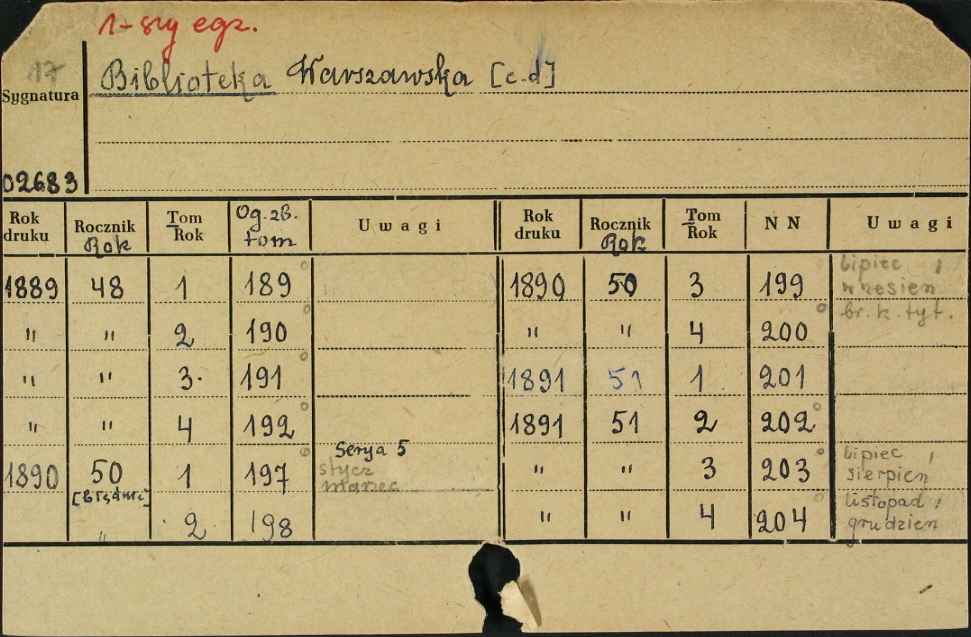 1-szy egz.
17
Biblioteka Warszawska [c.d]
Sygnatura
02683
Rok druku | Rocznik Rok | Tom Rok | Og. zb. tom | Uwagi | Rok druku | Rocznik Rok | Tom Rok | NN | Uwagi
1889 | 48 | 1 | 189 | | 1890 | 50 | 3 | 199 | lipiec, wrzesien
" | " | 2 | 190 | | " | " | 4 | 200 | br. k. tyt.
" | " | 3. | 191 | | 1891 | 51 | 1 | 201 |
" | " | 4 | 192 | | 1891 | 51 | 2 | 202 |
1890 | 50 | 1 | 197 | Serya 5 stycz marzec | " | " | 3 | 203 | lipiec, sierpien
" | 2 | 198 | | " | " | 4 | 204 | listopad, grudzien